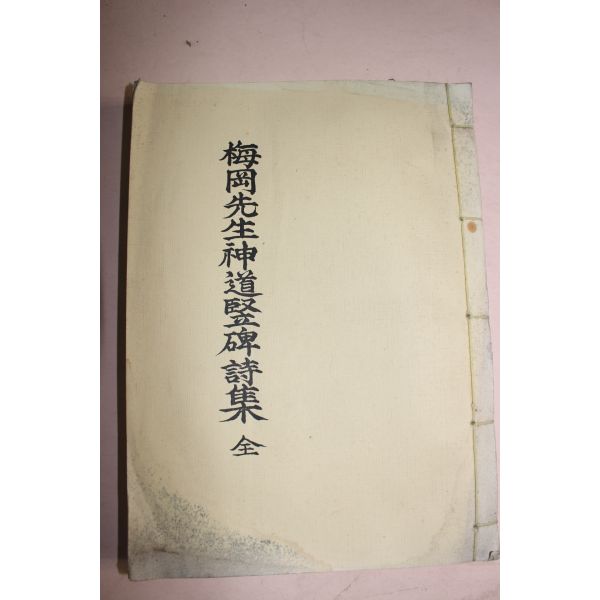 梅岡先生神道竪碑詩集 全